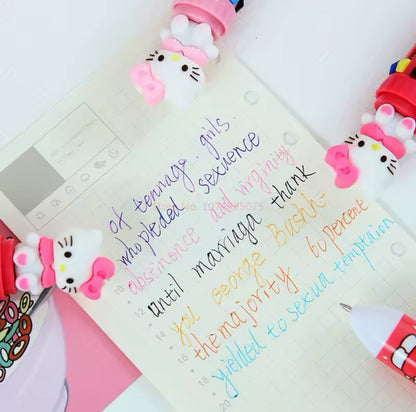 of teenage. girls.
who pleded sexuence
abstinonce and virginity
until marriaga thank
you george Bush.
themajority 60 percent
yielded to sexua temptaion
10
12
14
16
18
20